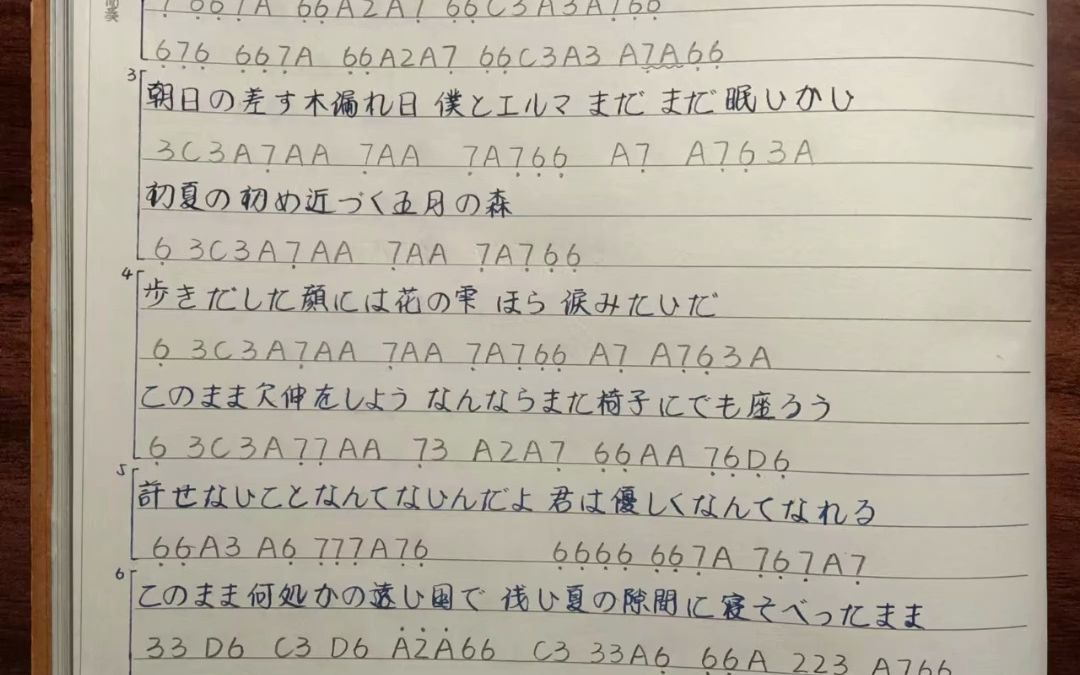 7 667A 66A2A7 66C3A3A766
676 667A 66A2A7 66C3A3 A7A66
3 朝日の差す木漏れ日 僕とエルマ まだ まだ 眠いかい
3C3A7AA 7AA 7A766 A7 A763A
初夏の初め近づく五月の森
6 3C3A7AA 7AA 7A766
4 歩きだした顔には花の雫 ほら 涙みたいだ
6 3C3A7AA 7AA 7A766 A7 A763A
このまま欠伸をしよう なんならまた椅子にでも座ろう
6 3C3A77AA 73 A2A7 66AA 76D6
5 許せないことなんてないんだよ 君は優しくなんてなれる
66A3 A6 777A76 6666 667A 767A7
6 このまま何処かの遠い国で 浅い夏の隙間に寝そべったまま
33 D6 C3 D6 A2A66 C3 33A6 66A 223 A766